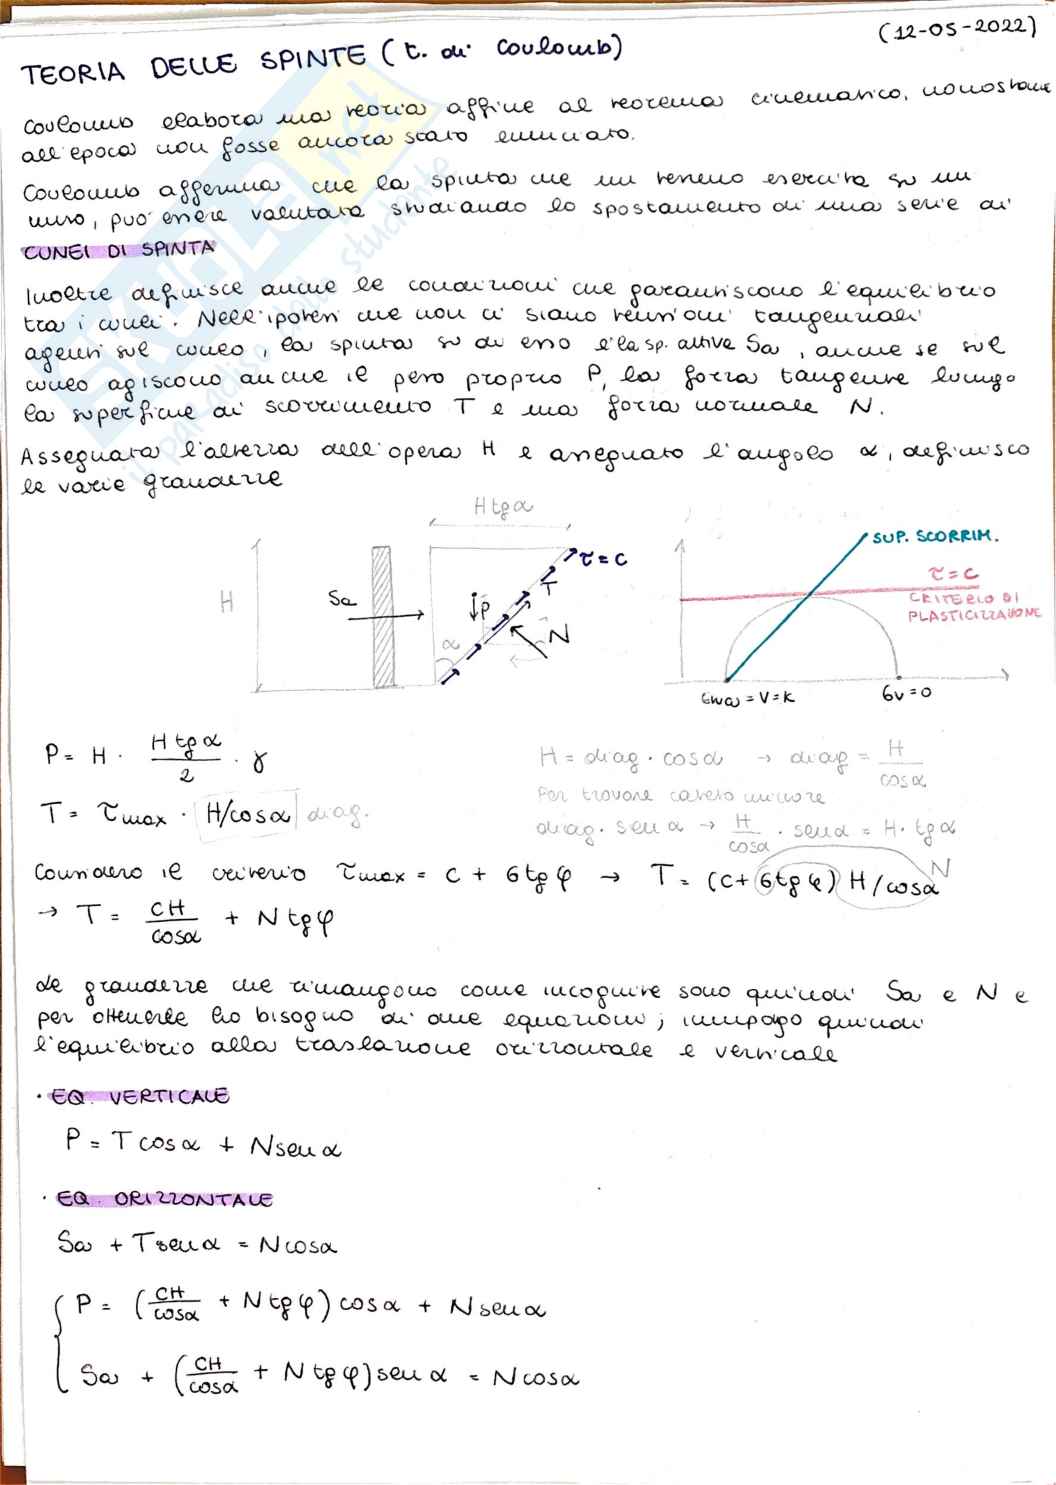 (12-05-2022)
TEORIA DELLE SPINTE (t. di Coulomb)
Coulomb elabora una teoria affine al teorema cinematico, nonostante
all'epoca non fosse ancora stato enunciato.
Coulomb afferma che la spinta che un terreno esercita su un
muro, può essere valutata studiando lo spostamento di una serie di
CUNEI DI SPINTA
Inoltre definisce anche le condizioni che garantiscono l'equilibrio
tra i cunei. Nell'ipotesi che non ci siano tensioni tangenziali
agenti sul cuneo, la spinta su di esso è la sp. attiva Sa, anche se sul
cuneo agiscono anche il peso proprio P, la forza tangente lungo
la superficie di scorrimento T e una forza normale N.
Assegnata l'altezza dell'opera H e assegnato l'angolo α, definisco
le varie grandezze
H tg α
SUP. SCORRIM.
τ = c
τ = c
CRITERIO DI
PLASTICIZZAZIONE
H
Sa
P
T
α
N
σv = 0
P = H · H tg α / 2 · γ
H = diag · cos α → diag = H / cos α
Per trovare cateto minore
T = τmax · H/cos α diag.
diag · sen α → H / cos α · sen α = H · tg α
Considero il criterio τmax = c + σ tg φ → T = (c + σ tg φ) H/cos α
N
→ T = CH / cos α + N tg φ
Le grandezze che rimangono come incognite sono quindi Sa e N e
per ottenerle ho bisogno di due equazioni; impongo quindi
l'equilibrio alla traslazione orizzontale e verticale
· EQ. VERTICALE
P = T cos α + N sen α
· EQ. ORIZZONTALE
Sa + T sen α = N cos α
P = (CH / cos α + N tg φ) cos α + N sen α
Sa + (CH / cos α + N tg φ) sen α = N cos α
SKUOLA.net
il paradiso dello studente